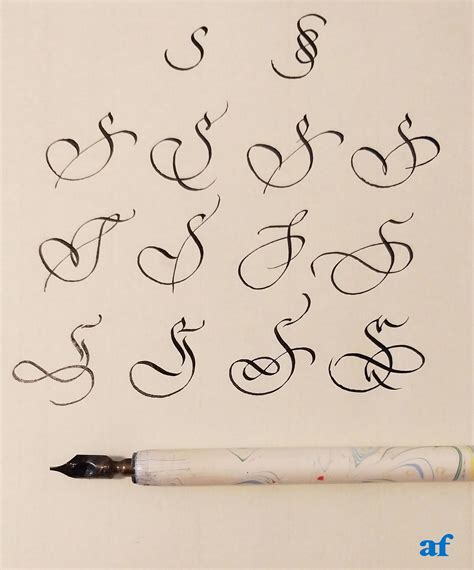 S S
S S S S
S S S S
S S S S
af